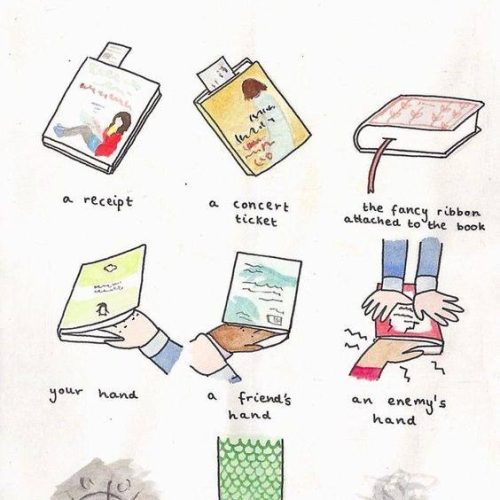 a receipt
a concert
ticket
the fancy ribbon
attached to the book
your hand
a friend's
hand
an enemy's
hand